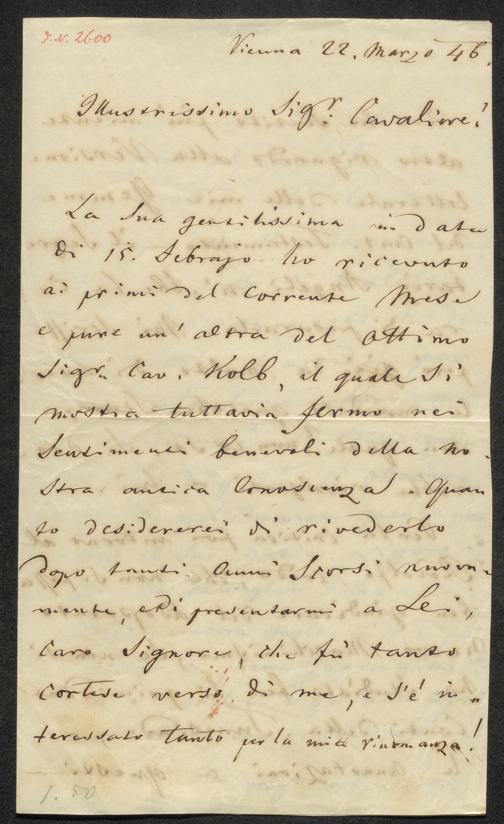 I.N. 2600
Vienna 22. Marzo 46.
Illustrissimo Sigr. Cavaliere!
La Sua gentilissima in data
di 15. Febrajo ho ricevuto
ai primi del corrente Mese
e pure un' altra del ottimo
Sigr. Cav. Kolb, il quale si
mostra tuttavia fermo nei
Sentimenti benevoli della no-
stra antica Conoscienza. Quan
to desidererei di rivederlo
dopo tanti anni Scorsi nuova-
mente, e di presentarmi a Lei,
Caro Signore, che fù tanto
Cortese verso di me, e s'é in-
teressato tanto per la mia rinomanza!
1.50